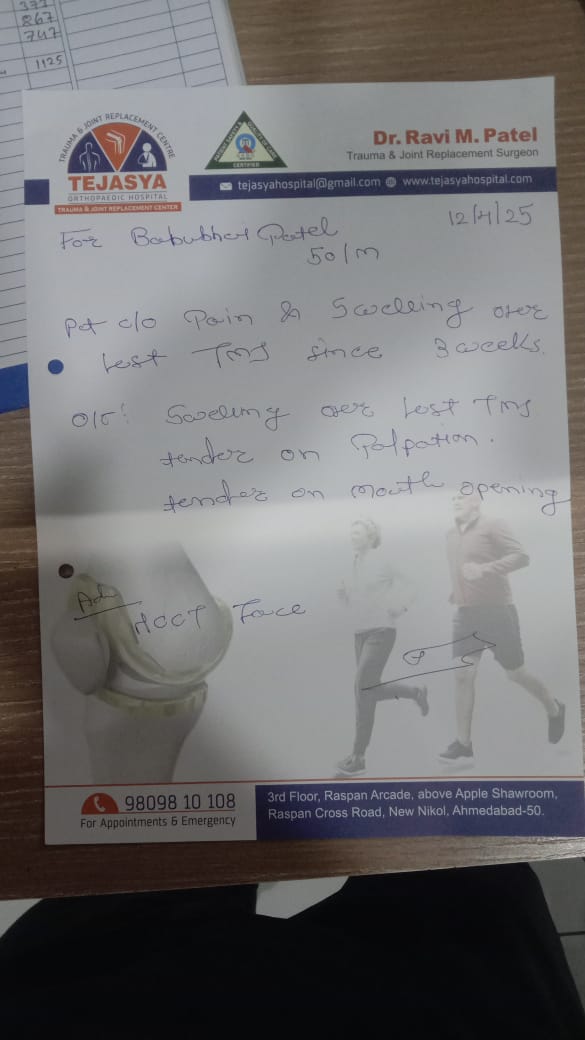 377
867
747
1125
TRAUMA & JOINT REPLACEMENT CENTRE
TEJASYA
ORTHOPAEDIC HOSPITAL
TRAUMA & JOINT REPLACEMENT CENTER
CERTIFIED
Dr. Ravi M. Patel
Trauma & Joint Replacement Surgeon
tejasyahospital@gmail.com www.tejasyahospital.com
12/4/25
For Babubhai Patel
50/M
Pt c/o Pain & Swelling over
Left TMJ since 3 weeks.
O/E: Swelling over Left TMJ
tender on Palpation.
tender on mouth opening
Adv
HCCT Face
98098 10 108
For Appointments & Emergency
3rd Floor, Raspan Arcade, above Apple Shawroom,
Raspan Cross Road, New Nikol, Ahmedabad-50.